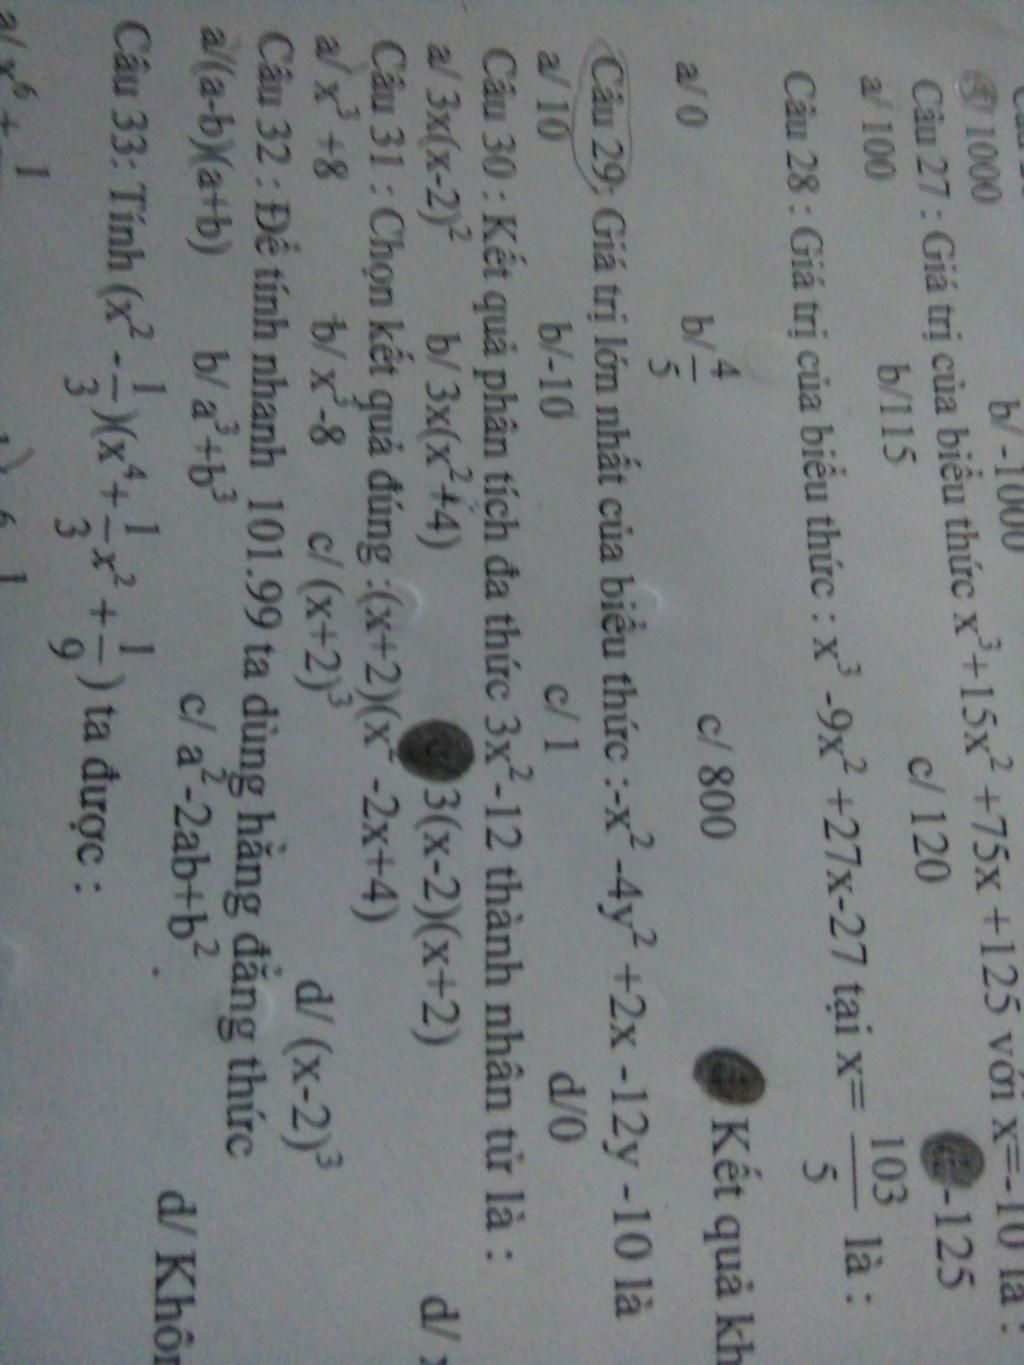 1000 b/ -1000
Câu 27 : Giá trị của biểu thức x³+15x² +75x +125 với x=-10 là :
a/ 100 b/115 c/ 120 -125
Câu 28 : Giá trị của biểu thức : x³ -9x² +27x-27 tại x= 103/5 là :
a/ 0 b/ 4/5 c/ 800 Kết quả
Câu 29: Giá trị lớn nhất của biểu thức :-x² -4y² +2x -12y -10 là
a/ 10 b/-10 c/ 1 d/0
Câu 30 : Kết quả phân tích đa thức 3x²-12 thành nhân tử là :
a/ 3x(x-2)² b/ 3x(x²+4) 3(x-2)(x+2) d/
Câu 31 : Chọn kết quả đúng :(x+2)(x² -2x+4)
a/ x³ +8 b/ x³-8 c/ (x+2)³ d/ (x-2)³
Câu 32 : Để tính nhanh 101.99 ta dùng hằng đẳng thức
a/(a-b)(a+b) b/ a³+b³ c/ a²-2ab+b² d/
Câu 33: Tính (x² - 1/3)(x⁴+ 1/3 x² + 1/9) ta được :
a/ x⁶ +